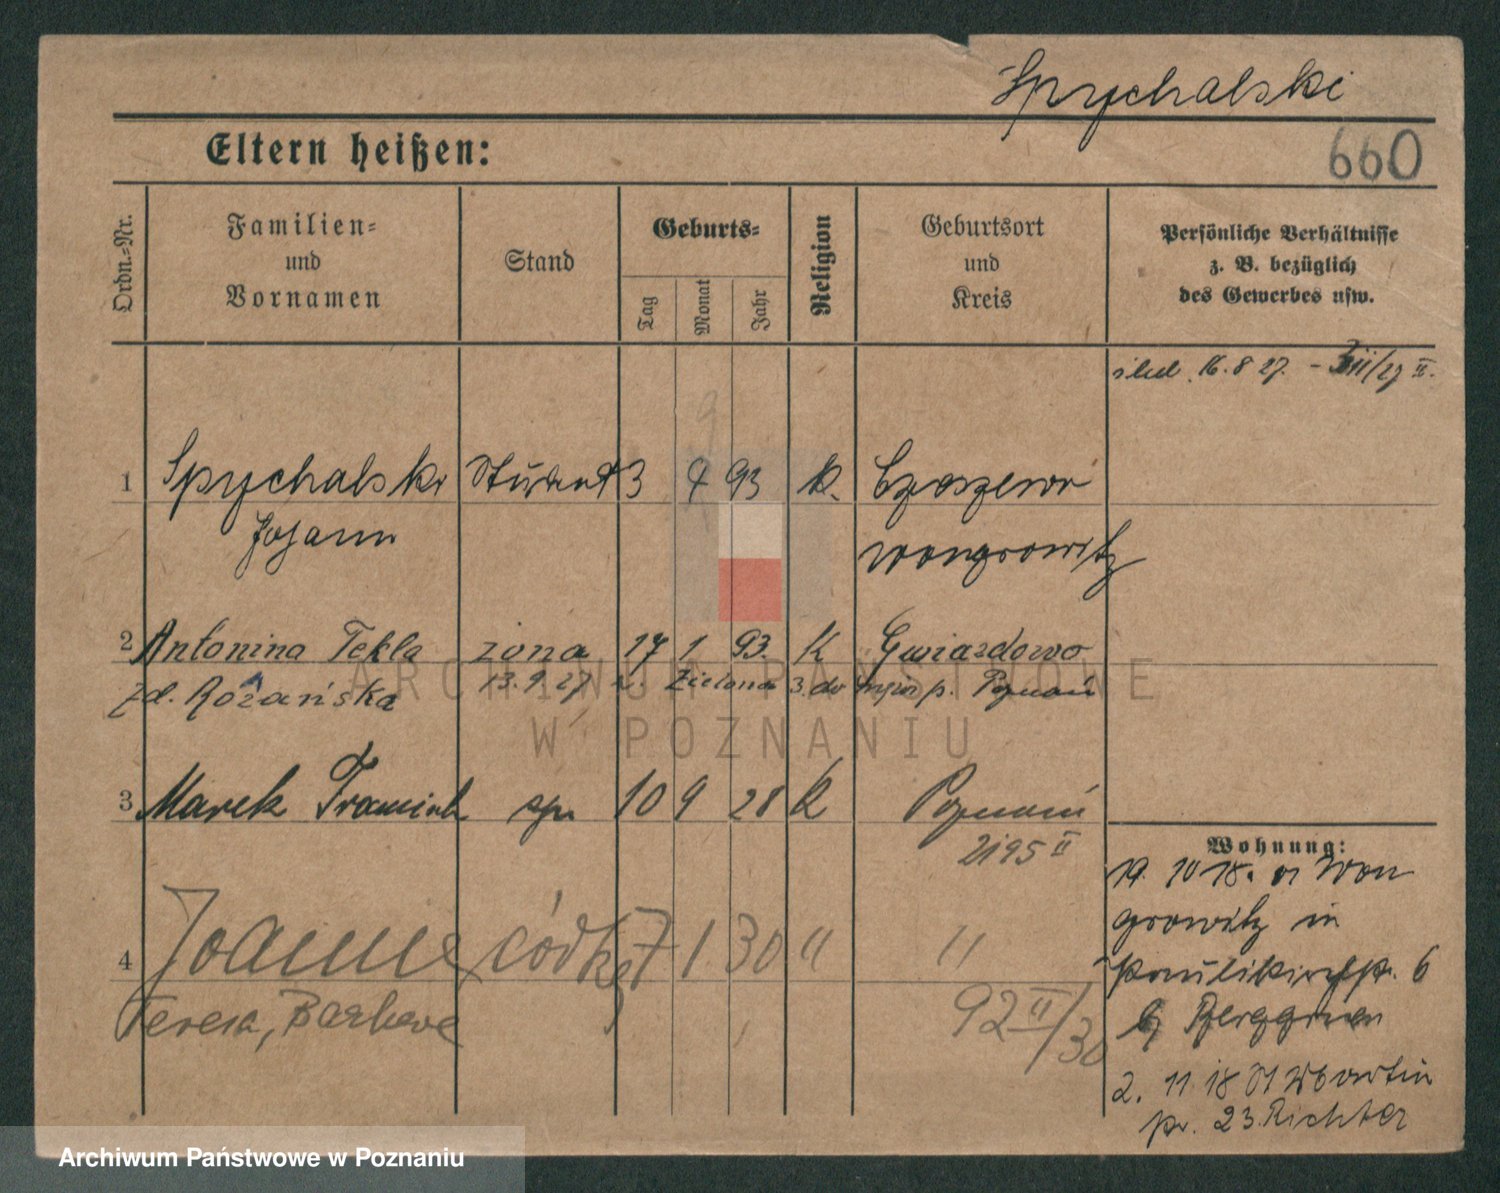 Spychalski
660
Eltern heißen:
Ordn.-Nr.
Familien-
und
Vornamen
Stand
Geburts-
Tag
Monat
Jahr
Religion
Geburtsort
und
Kreis
Persönliche Verhältnisse
z. B. bezüglich
des Gewerbes usw.
16. 8 27.
1 Spychalski Student 3 9 93 k.
Johann
Wongrowitz
2 Antonina Tekla żona 17 1 93. K Gwiazdowo
zd. Rożańska 13. 9. 27 Zielona 3. do p. Poznań
3 Marek 10 9 28 k Poznań
2195 II
4 Joanna córka 7 1 30 " "
Teresa, Barbara
92 II/30
Wohnung:
19. 10 18. Won
growitz in
Paulikirchstr. 6
2. 11 18 St Martin
23. Richter
ARCHIWUM PAŃSTWOWE
W POZNANIU
Archiwum Państwowe w Poznaniu